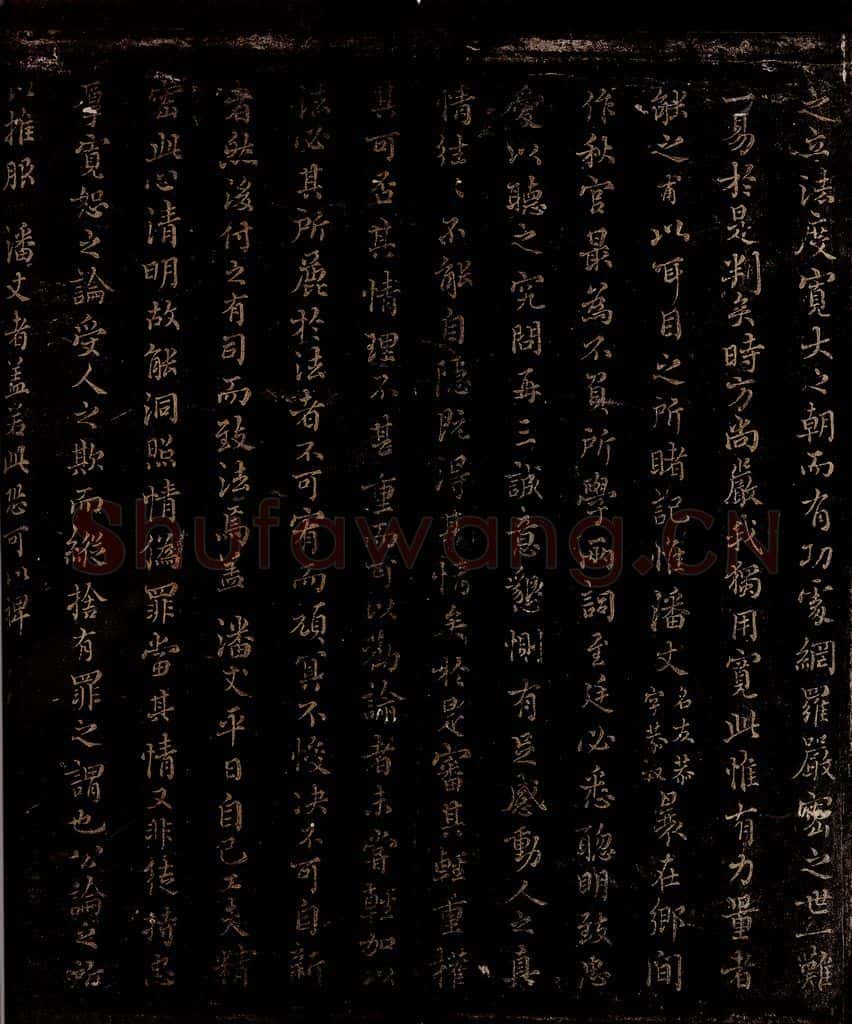 之立法度寬大之朝而有功處網羅嚴密之世一難
一易於是判矣時方尚嚴我獨用寬此惟有力量者
能之甫以耳目之所睹記惟潘丈名友恭字恭叔最在鄉間
作秋官最為不負所學兩詞至廷必悉聰明致忠
愛以聽之究問再三誠意懇惻有足感動人之真
情往〻不能自隱既得其情矣於是審其輕重權
其可否其情理不甚重而可以為論者未嘗輕加以
法必其所麗於法者不可宥而頑冥不悛決不可自新
者然後付之有司而致法焉蓋潘丈平日自己工夫精
密此心清明故能洞照情偽罪當其情又非徒持忠
厚寬恕之論受人之欺而縱捨有罪之謂也公論之所
以推服潘丈者蓋若此恐可以裨
Shufawang.CN